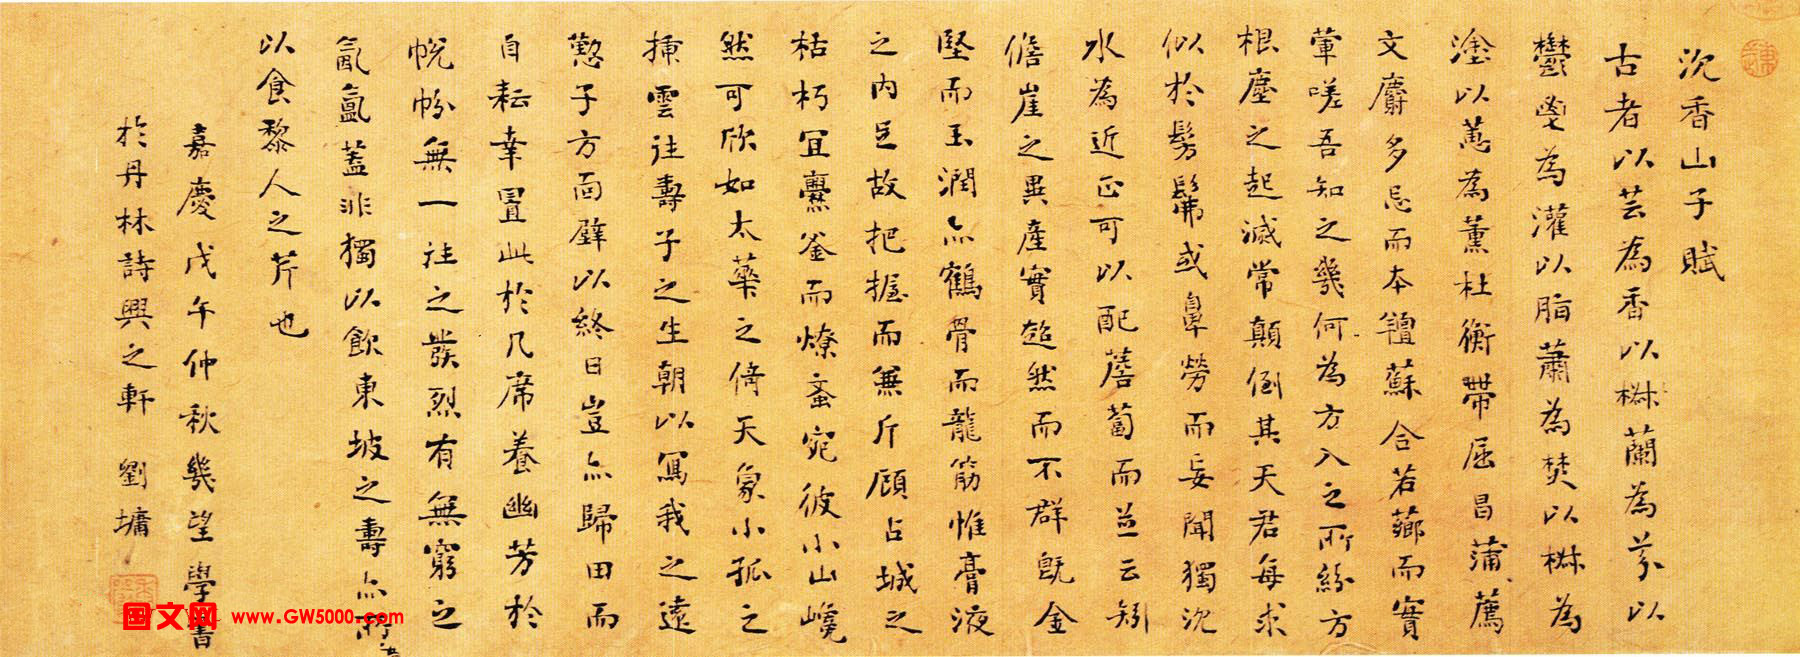 沉香山子賦
古者以芸為香以椒蘭為芬以
鬱鬯為灌以脂蕭為焚以椒為
塗以蕙為薰杜衡帶屈昌蒲薦
文麝多忌而本羶蘇合若薌而實
葷嗟吾知之幾何為六入之所紛方
根塵之起滅常顛倒其天君每求
似於髣髴或鼻勞而妄聞獨沉
水為近正可以配薝蔔而並云矧
儋崖之異產實超然而不群既金
堅而玉潤亦鶴骨而龍筋惟膏液
之內足故把握而兼斤顧占城之
枯朽宜爨釜而燎蚉宛彼小山巉
然可欣如太華之倚天象小孤之
插雲往壽子之生朝以寫我之遠
懃子方面壁以終日豈亦歸田而
自耘幸置此於几席養幽芳於
帨帉無一往之發烈有無窮之
氤氳蓋非獨以飲東坡之壽亦所
以食黎人之芹也
嘉慶戊午仲秋幾望學書
於丹林詩興之軒 劉墉
国文网 www.GW5000.com